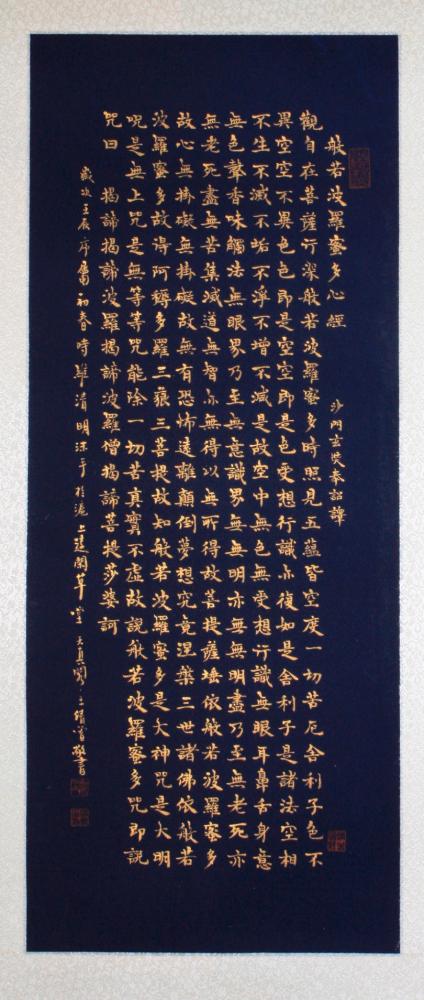 般若波羅蜜多心經 沙門玄奘奉詔譯
觀自在菩薩行深般若波羅蜜多時照見五蘊皆空度一切苦厄舍利子色不
異空空不異色色即是空空即是色受想行識亦復如是舍利子是諸法空相
不生不滅不垢不淨不增不減是故空中無色無受想行識無眼耳鼻舌身意
無色聲香味觸法無眼界乃至無意識界無無明亦無無明盡乃至無老死亦
無老死盡無苦集滅道無智亦無得以無所得故菩提薩埵依般若波羅蜜多
故心無掛礙無掛礙故無有恐怖遠離顛倒夢想究竟涅槃三世諸佛依般若
波羅蜜多故得阿耨多羅三藐三菩提故知般若波羅蜜多是大神咒是大明
呪是無上咒是無等等咒能除一切苦真實不虛故說般若波羅蜜多咒即說
咒曰 揭諦揭諦波羅揭諦波羅僧揭諦菩提莎婆訶
歲次壬辰序屬初春時維清明沐手於滬上草堂敬書